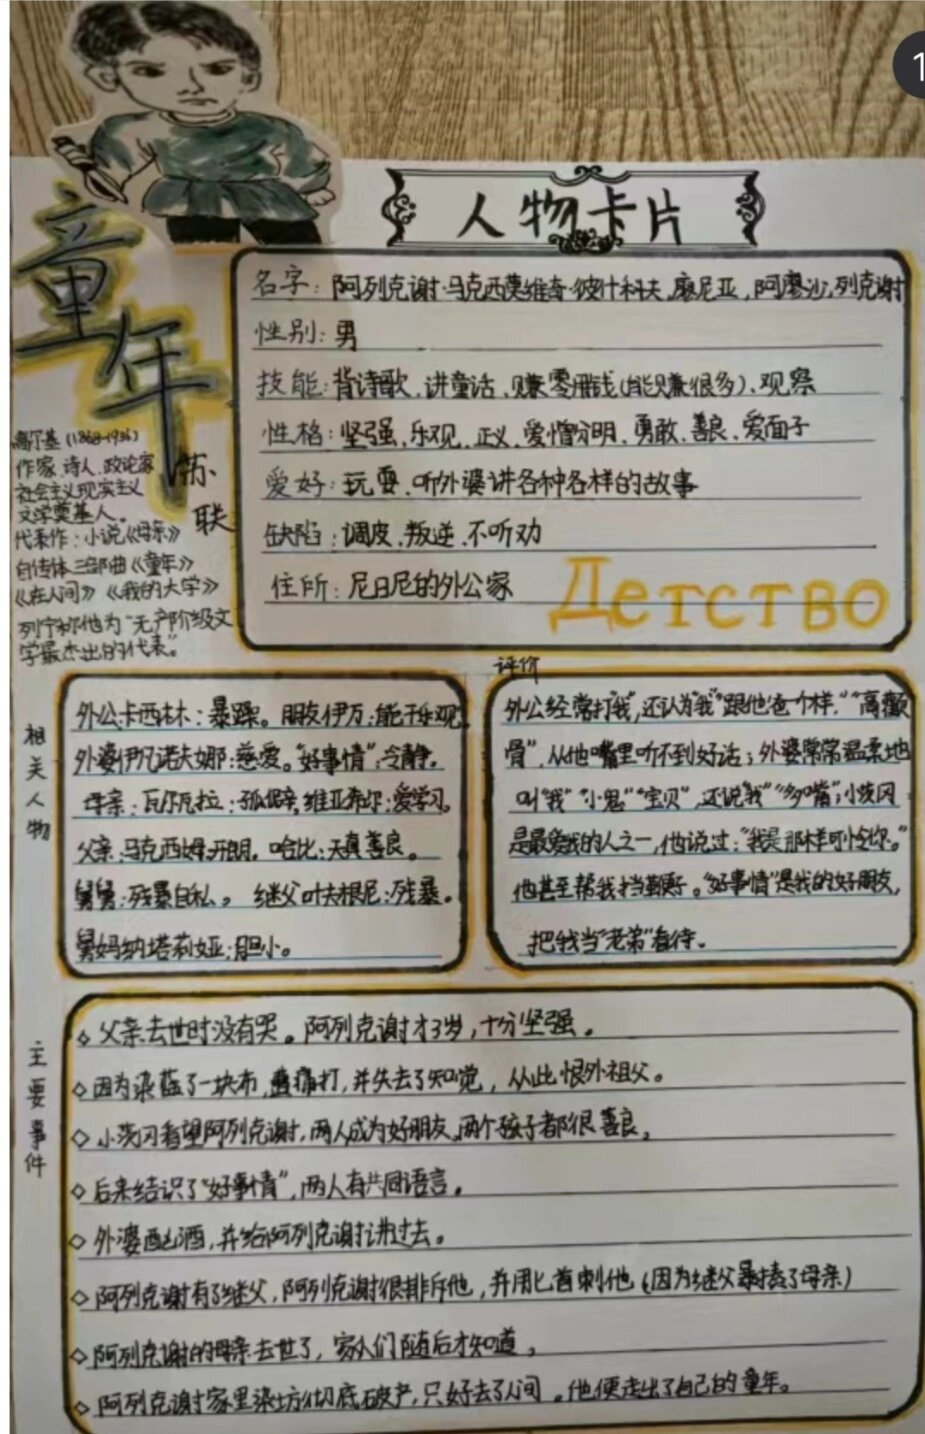 1
人物卡片
童年
苏联
高尔基(1868-1936)
作家、诗人、政论家
社会主义现实主义
文学奠基人。
代表作：小说《母亲》
自传体三部曲《童年》
《在人间》《我的大学》
列宁称他为“无产阶级文
学最杰出的代表”。
名字：阿列克谢·马克西莫维奇·彼什科夫,廖尼亚,阿廖沙,列克谢
性别：男
技能：背诗歌、讲童话、赚零用钱(能赚很多)、观察
性格：坚强、乐观、正义、爱憎分明、勇敢、善良、爱面子
爱好：玩耍、听外婆讲各种各样的故事
缺陷：调皮、叛逆、不听劝
住所：尼日尼的外公家
Детство
相关人物
外公:卡西林：暴躁。朋友伊万:能干乐观
外婆伊凡诺夫娜:慈爱。“好事情”:冷静。
母亲：瓦尔瓦拉：孤僻,维亚希尔:爱学习。
父亲:马克西姆:开朗。哈比:天真善良。
舅舅:残暴自私。继父叶夫根尼:残暴。
舅妈纳塔莉娅:胆小。
评价
外公经常打“我”,还认为“我”跟他爸一个样,“高颧
骨”,从他嘴里听不到好话；外婆常常温柔地
叫“我”“小鬼”“宝贝”,还说“我”“多嘴”;小茨冈
是最爱我的人之一,他说过:“我是那样可怜你。”
他甚至帮我挡鞭子。“好事情”是我的好朋友,
把我当“老弟”看待。
主要事件
◇父亲去世时没有哭。阿列克谢才3岁,十分坚强。
◇因为染蓝了一块布,遭痛打,并失去了知觉,从此恨外祖父。
◇小茨冈看望阿列克谢,两人成为好朋友,两个孩子都很善良。
◇后来结识了“好事情”,两人有共同语言。
◇外婆酗酒,并给阿列克谢讲过去。
◇阿列克谢有了继父,阿列克谢很排斥他,并用匕首刺他(因为继父暴揍了母亲)
◇阿列克谢的母亲去世了,家人们随后才知道。
◇阿列克谢家里染坊彻底破产,只好去了人间。他便走出了自己的童年。